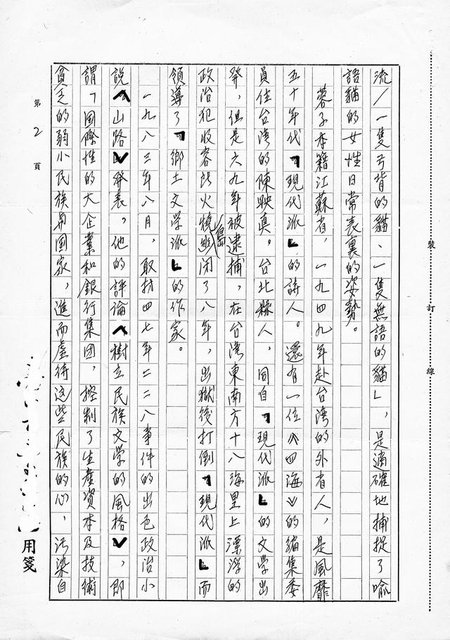 流／一隻弓背的貓、一隻無語的貓」，是適確地捕捉了喻
語貓的女性日常表裏的姿勢。
蓉子本籍江蘇省，一九四九年赴台灣的外省人，是風靡
五十年代「現代派」的詩人。還有一位《四海》的編集委
員住台灣的陳映真。台北縣人，同自「現代派」的文學出
發，但是六九年被逮捕，在台灣東南方十八海里上漂浮的
政治犯收容所火燒島幽閉了八年，出獄後打倒「現代派」而
領導了「鄉土文學派」的作家。
一九八三年八月，取材四七年二二八事件的出色政治小
說〈山路〉發表。他的評論〈樹立民族文學的風格〉，即
謂「國際性的大企業和銀行集團，控制了生產資本及技術
貧乏的弱小民族與國家，進而虐待這些民族的心，污染自
第2頁
裝訂線
用箋